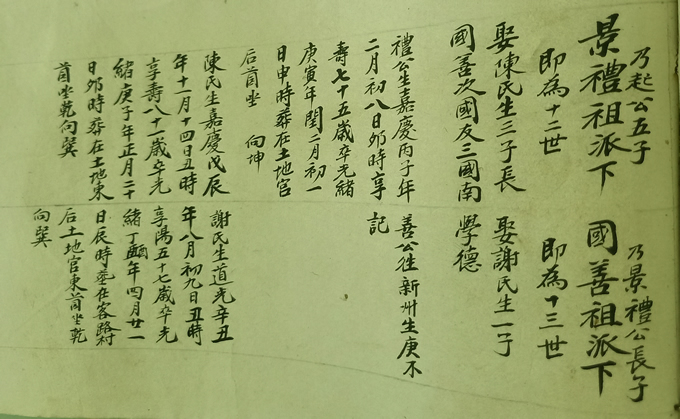 乃起公五子
景禮祖派下
即為十二世
娶陳氏生三子長
國善次國友三國南
禮公生嘉慶丙子年
二月初八日夘時享
壽七十五歲卒光緒
庚寅年閏二月初一
日申時葬在土地宮
后首坐 向坤
陳氏生嘉慶戊辰
年十一月十四日丑時
享壽八十一歲卒光
緒庚子年正月二十
日夘時葬在土地東
首坐乾向巽
乃景禮公長子
國善祖派下
即為十三世
娶謝氏生一子
學德
善公往新州生庚不
記
謝氏生道光辛丑
年八月初九日丑時
享陽五十七歲卒光
緒丁酉年四月廿一
日辰時塟在客路村
后土地宮東首坐乾
向巽